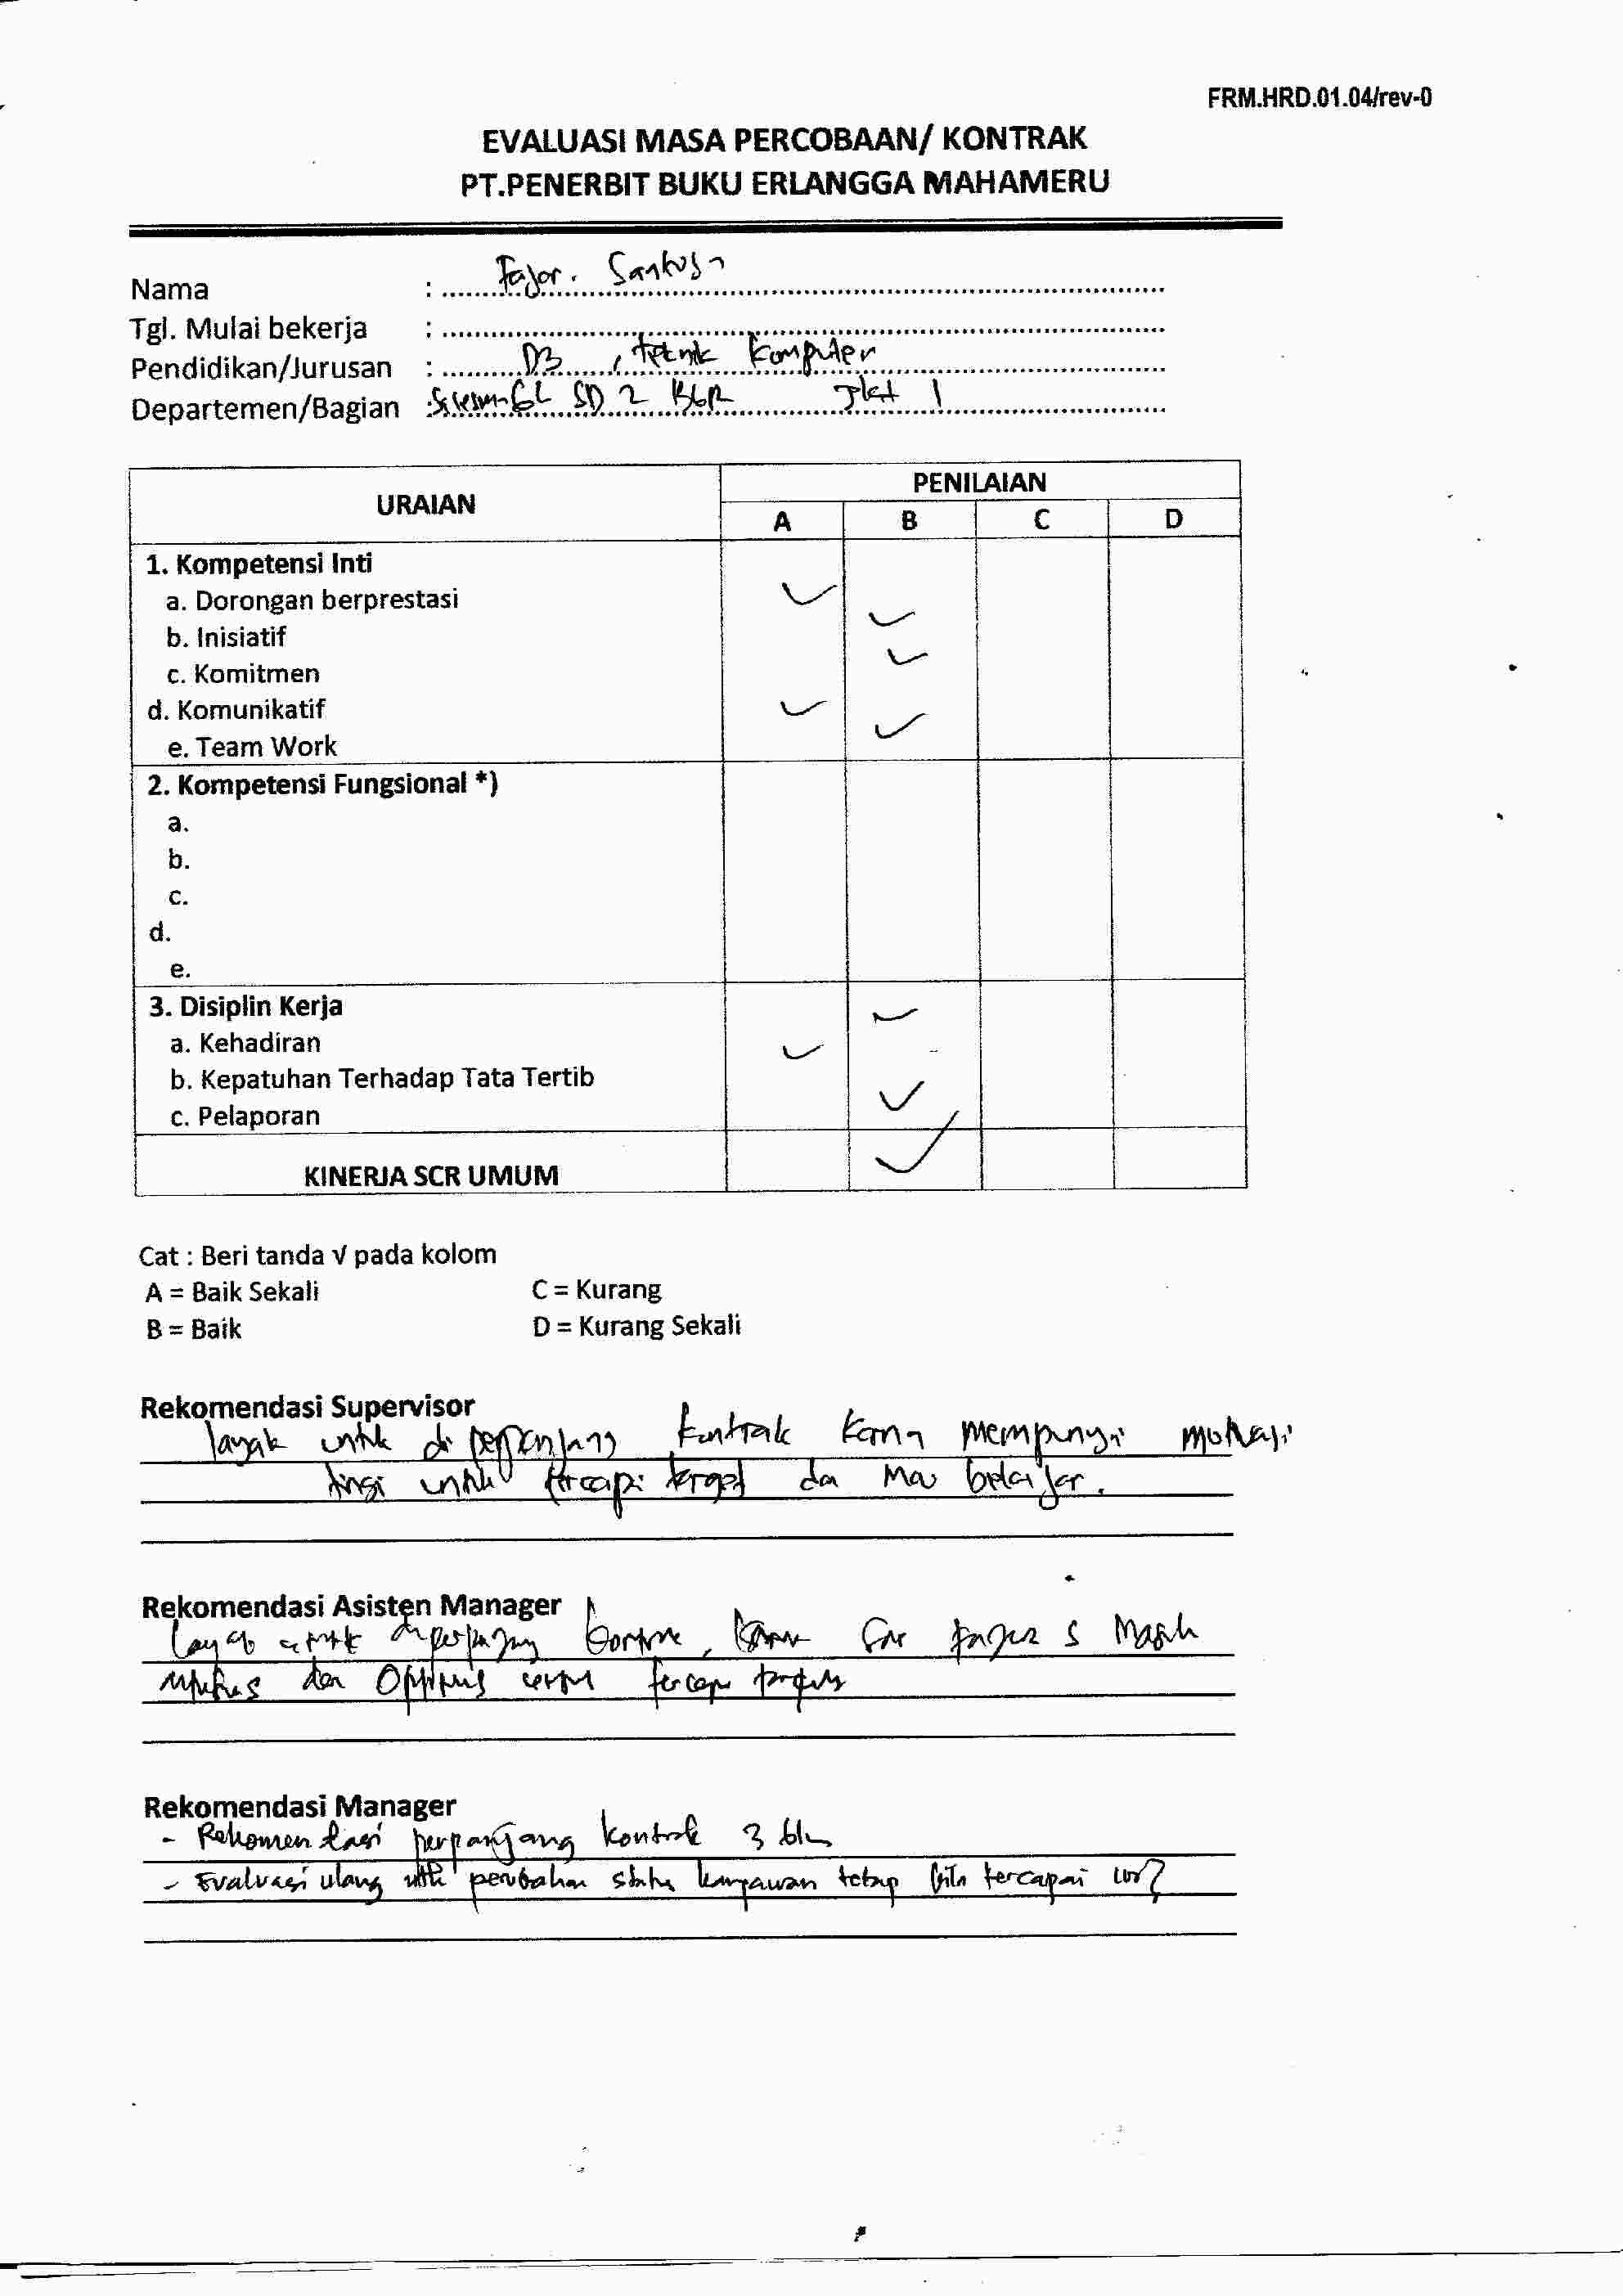 FRM.HRD.01.04/rev-0
EVALUASI MASA PERCOBAAN/ KONTRAK
PT.PENERBIT BUKU ERLANGGA MAHAMERU
Nama : Fajar. Santosa
Tgl. Mulai bekerja :
Pendidikan/Jurusan : D3, teknik komputer
Departemen/Bagian : SD 2 BGR Jkt 1
URAIAN PENILAIAN
A B C D
1. Kompetensi Inti
a. Dorongan berprestasi √
b. Inisiatif √
c. Komitmen √
d. Komunikatif √
e. Team Work √
2. Kompetensi Fungsional *)
a.
b.
c.
d.
e.
3. Disiplin Kerja √
a. Kehadiran √
b. Kepatuhan Terhadap Tata Tertib √
c. Pelaporan
KINERJA SCR UMUM √
Cat : Beri tanda √ pada kolom
A = Baik Sekali C = Kurang
B = Baik D = Kurang Sekali
Rekomendasi Supervisor
layak untuk di perpanjang kontrak karna mempunyi motivasi
tingi untuk tercapi target dan mau belajar.
Rekomendasi Asisten Manager
Layak untuk diperpanjang masih
dan tercapai
Rekomendasi Manager
- Rekomendasi perpanjang kontrak 3 bln
- Evaluasi ulang utk perubahan status karyawan tetap bila tercapai